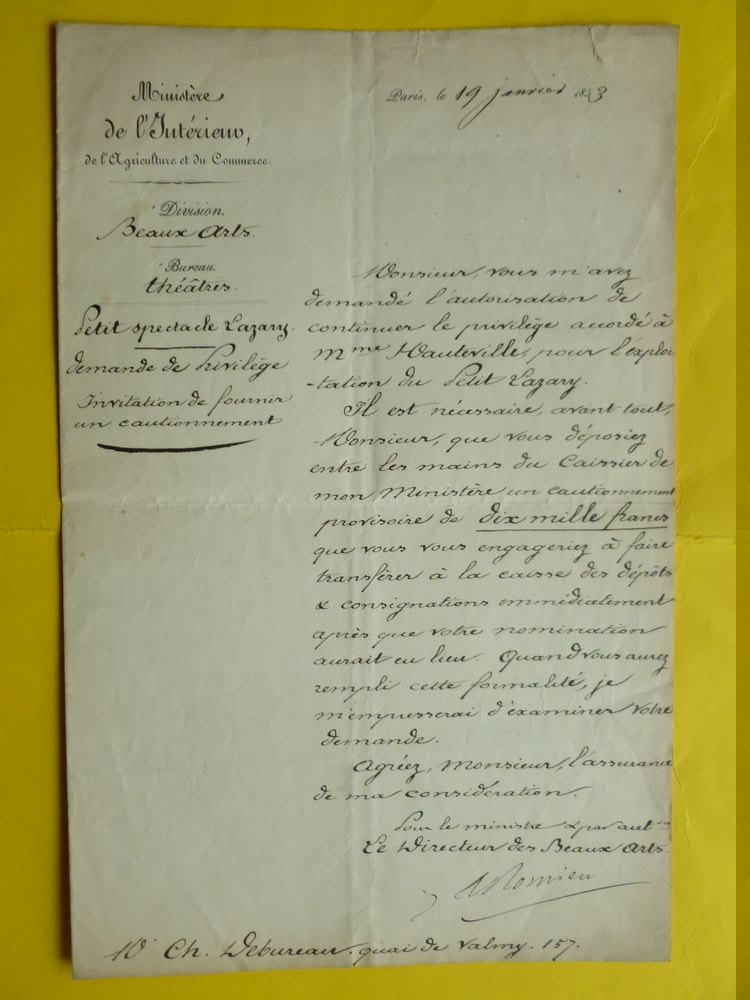 Ministère
de l'Intérieur,
de l'Agriculture et du Commerce.
Paris, le 19 janvier 1853
e Division.
Beaux Arts.
e Bureau.
théâtres.
Petit spectacle Lazary.
demande de Privilège
Invitation de fournir
un cautionnement
Monsieur, vous m'avez
demandé l'autorisation de
continuer le privilège accordé à
Mme Hauteville, pour l'exploi
-tation du Petit Lazary.
Il est nécessaire, avant tout,
Monsieur, que vous déposiez
entre les mains du Caissier de
mon Ministère un cautionnement
provisoire de dix mille francs
que vous vous engageriez à faire
transférer à la caisse des dépôts
& consignations immédiatement
après que votre nomination
aurait eu lieu. Quand vous aurez
rempli cette formalité, je
m'empresserai d'examiner votre
demande.
Agréez, Monsieur, l'assurance
de ma considération.
Pour le ministre & par auton
Le Directeur des Beaux Arts.
Romieu
Ch. Debureau. quai de Valmy. 157.